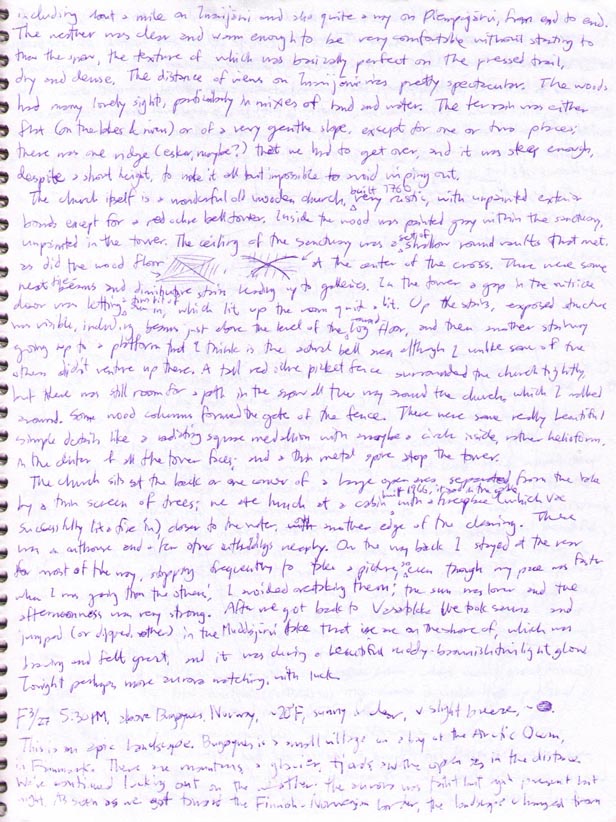 including about a mile on Inarijärvi and also quite a way on Pielpajärvi, from end to end.
The weather was clear and warm enough to be very comfortable without starting to
thaw the snow, the texture of which was basically perfect on the pressed trail,
dry and dense. The distance of views on Inarijärvi was pretty spectacular. The woods
had many lovely sights, particularly in mixes of land and water. The terrain was either
flat (on the lakes & river) or of a very gentle slope, except for one or two places;
there was one ridge (esker, maybe?) that we had to get over, and it was steep enough,
despite a short height, to make it all but impossible to avoid wiping out.
The church itself is a wonderful old wooden church, built 1760, very rustic, with unpainted exterior
boards except for a red ochre bell tower. Inside the wood was painted gray within the sanctuary,
unpainted in the tower. The ceiling of the sanctuary was a set of shallow round vaults that met.
as did the wood floor , at the center of the cross. There were some
neat tie beams and diminutive stairs leading up to galleries. In the tower a gap in the outside
door was letting a tiny bit of sun in, which lit up the room quite a bit. Up the stairs, exposed structure
was visible, including beams just above the level of the round log floor, and then another stairway
going up to a platform that I think is the actual bell area although I unlike some of the
others didn't venture up there. A tall red ochre picket fence surrounded the church tightly,
but there was still room for a path in the snow all the way around the church, which I walked
around. Some wood columns formed the gate of the fence. There were some really beautiful
simple details like a radiating square medallion with maybe a circle inside, rather helioform,
in the center of all the tower faces; and a thin metal spire atop the tower.
The church sits at the back or one corner of a large open area separated from the lake
by a thin screen of trees; we ate lunch at a cabin with a fireplace (which we
successfully lit a fire in) closer to the water, another edge of the clearing. There
was an outhouse and a few other outbuildings nearby. On the way back I stayed at the rear
for most of the way, stopping frequently to take a picture, so even though my pace was faster
when I was going than the others', I avoided overtaking them; the sun was lower and the
afternoonness was very strong. After we got back to Vasatokka we took sauna and
jumped (or dipped, rather) in the Muddusjärvi lake that we are on the shore of, which was
bracing and felt great, and it was during a beautiful ruddy-brownish twilight glow.
Tonight perhaps more aurora watching, with luck.
F 3/27 5:30 PM, above Bugøynes, Norway, ~20°F, sunny & clear, v slight breeze,
This is an epic landscape. Bugøynes is a small village on a bay of the Arctic Ocean,
in Finnmark. There are mountains, a glacier, fjords and the open sea in the distance.
We've continued lucking out on the weather. The aurora was faint but yet present last
night. As soon as we got toward the Finnish-Norwegian border, the landscape changed from